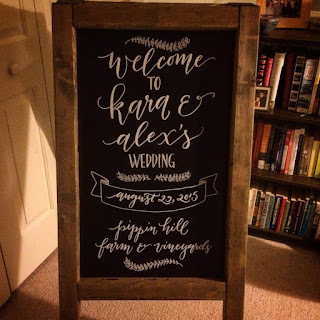 welcome
TO
kara &
alex's
WEDDING
august 23, 2015
pippin hill
farm & vineyards